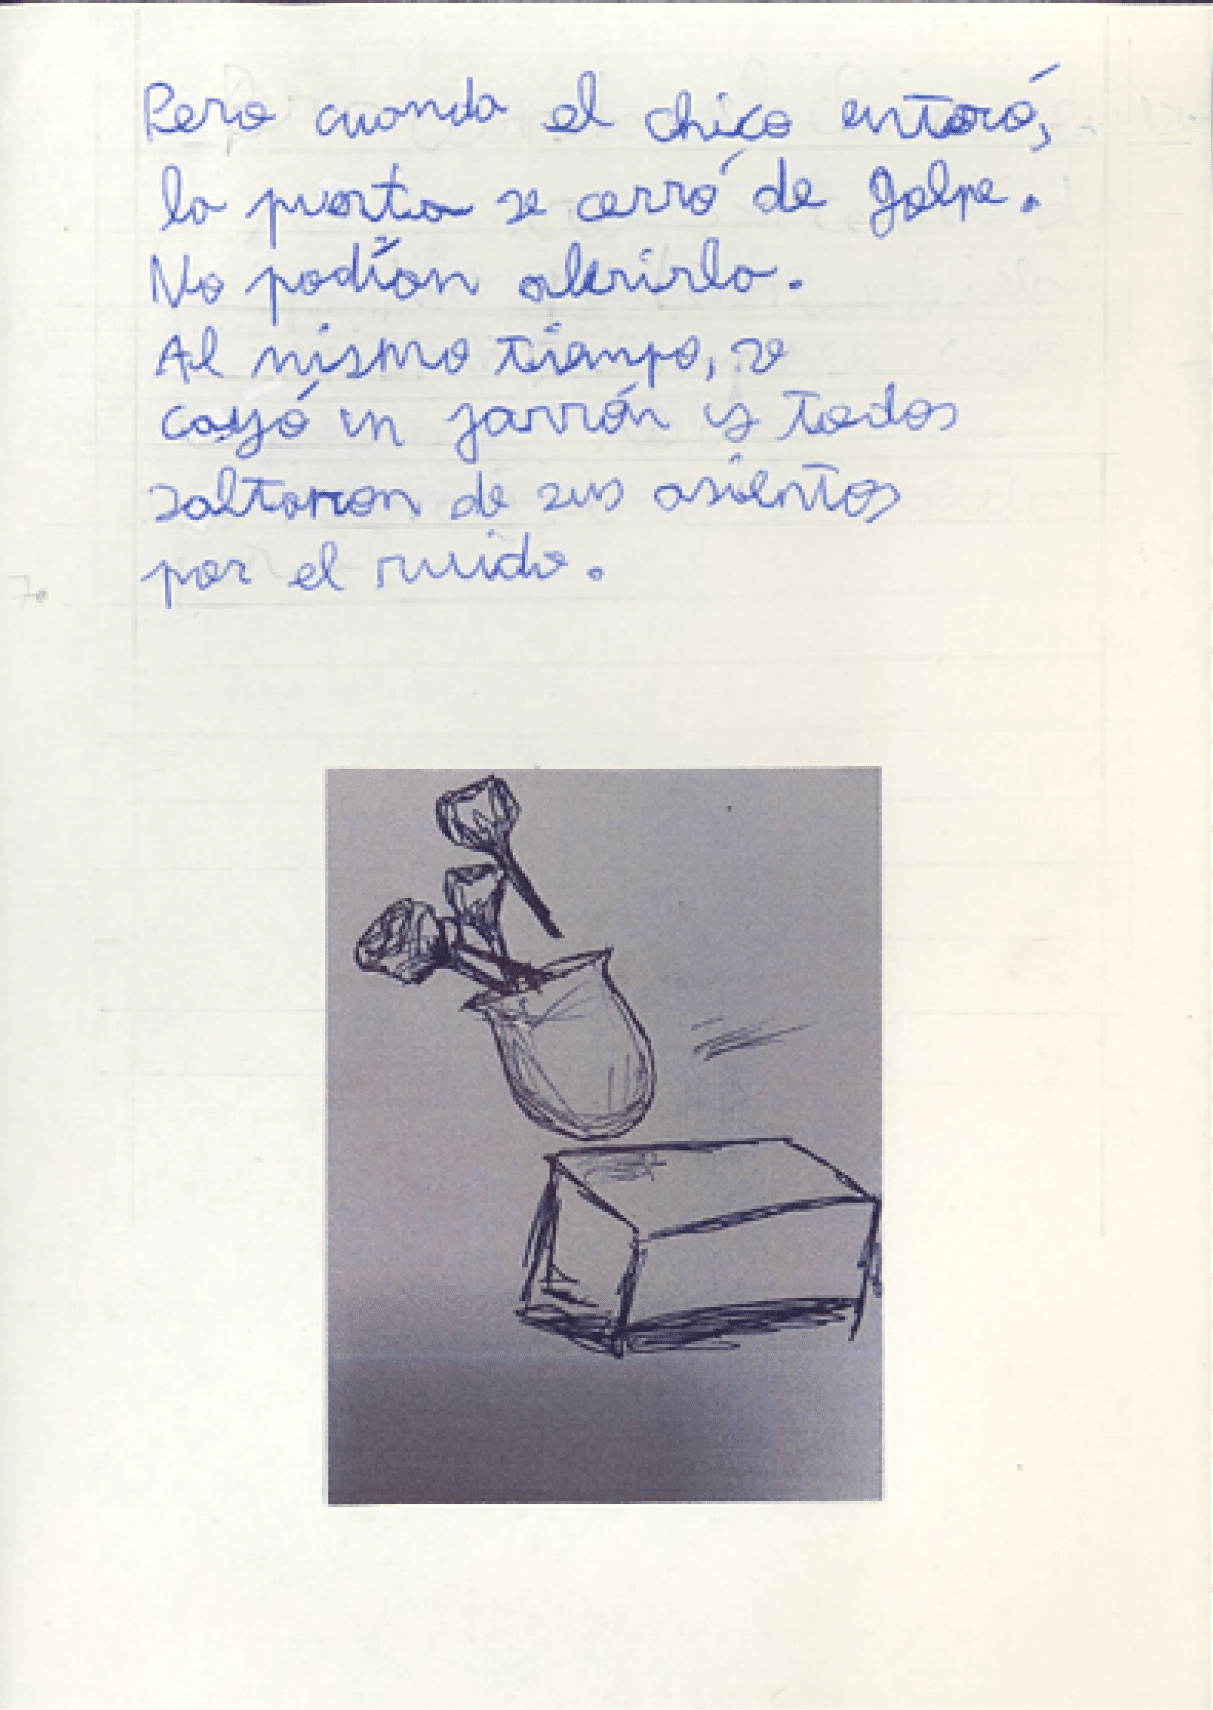 Pero cuando el chico entoró,
la puerta se cerró de golpe.
No podían abrirla.
Al mismo tiempo, se
cayó un jarrón y todos
saltaron de sus asientos
por el ruido.